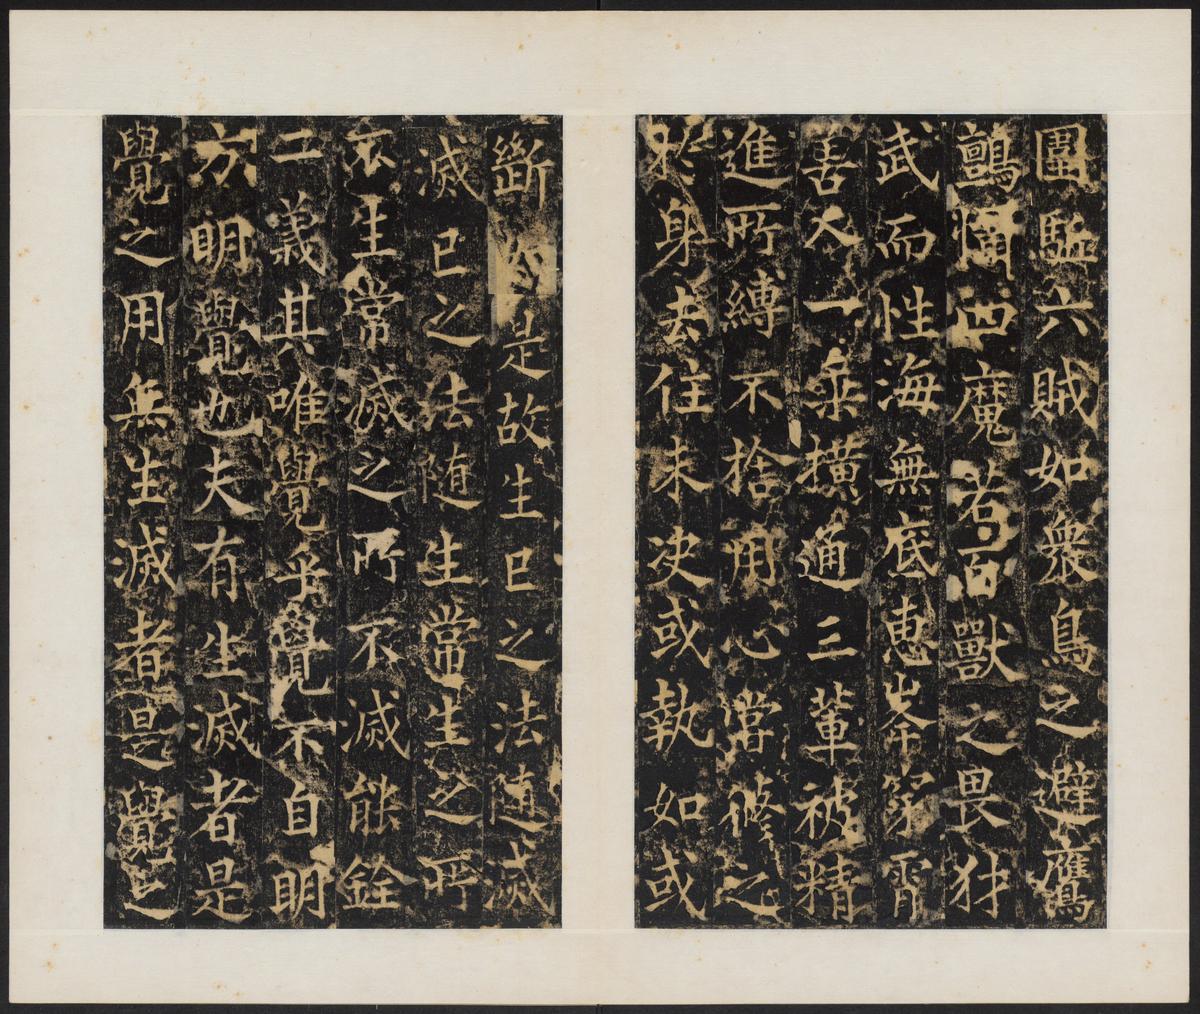 圍駈六賊如衆鳥之避鷹
鸇怖四魔若百獸之畏豺
武而性海無底惠岑霄
善入一乘橫通三輩被精
進所縛不捨用心當修之
於身去住未决或執如或
斷如是故生已之法随滅
滅已之法随生常生之所
不生常滅之所不滅能銓
二義其唯覺乎覺不自明
方明覺也夫有生滅者是
覺之用無生滅者是覺之